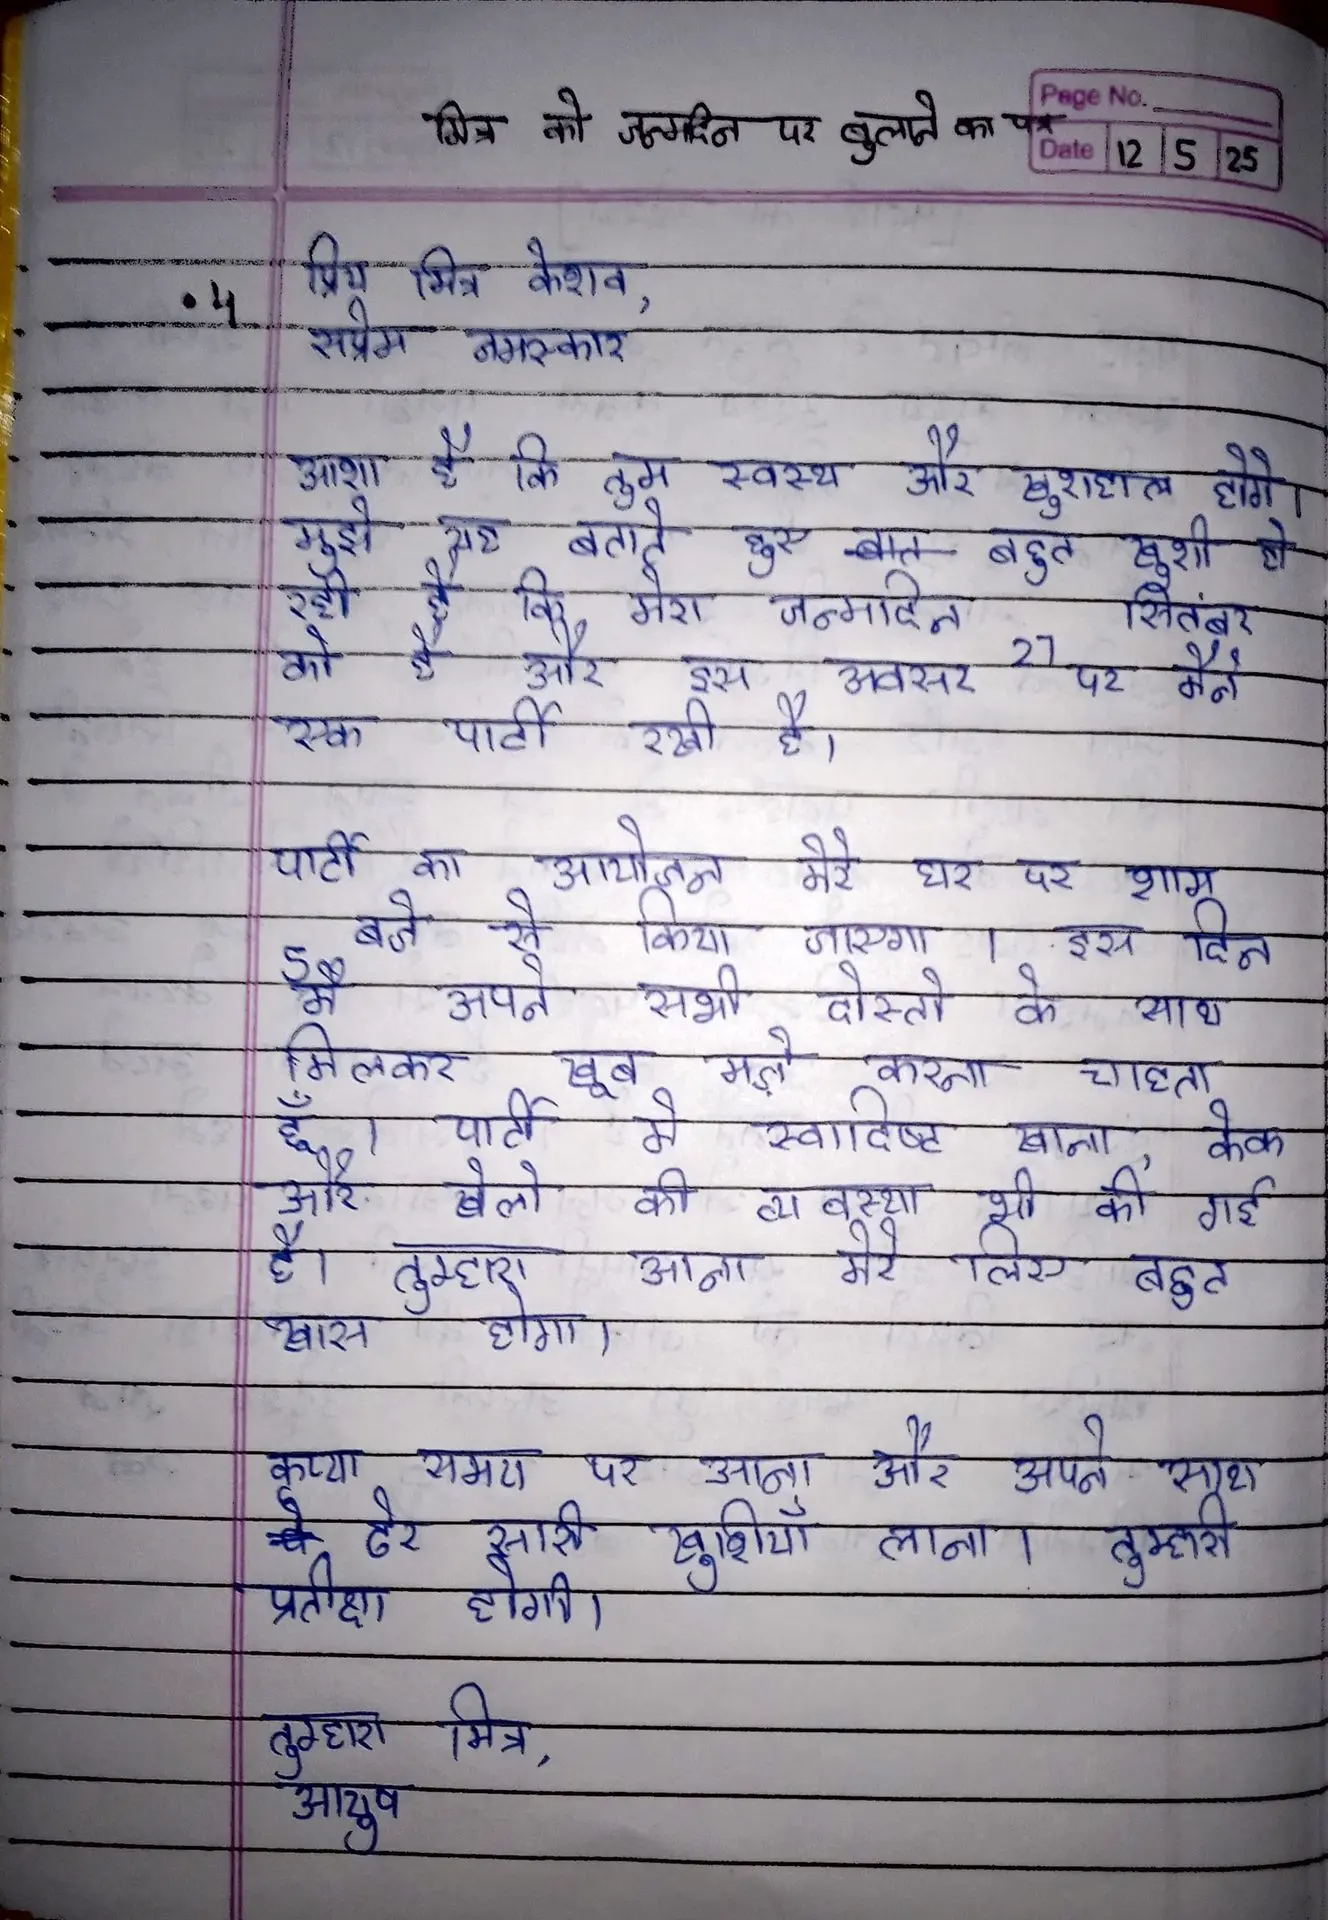 Page No.
मित्र को जन्मदिन पर बुलाने का पत्र
Date 12 5 25
प्रिय मित्र केशव,
.4
सप्रेम नमस्कार
आशा है कि तुम स्वस्थ और खुशहाल होगे।
मुझे यह बताते हुए बात बहुत खुशी हो
रही है कि मेरा जन्मदिन 27 सितंबर
को है और इस अवसर पर मैंने
एक पार्टी रखी है।
पार्टी का आयोजन मेरे घर पर शाम
5 बजे से किया जाएगा । इस दिन
मैं अपने सभी दोस्तो के साथ
मिलकर खूब मज़े करना चाहता
हूँ । पार्टी मे स्वादिष्ट खाना, केक
और खेलो की व्यवस्था भी की गई
है। तुम्हारा आना मेरे लिए बहुत
खास होगा।
कृप्या समय पर आना और अपने साथ
ढेर सारी खुशियाँ लाना। तुम्हारी
प्रतीक्षा होगी।
तुम्हारा मित्र,
आयुष